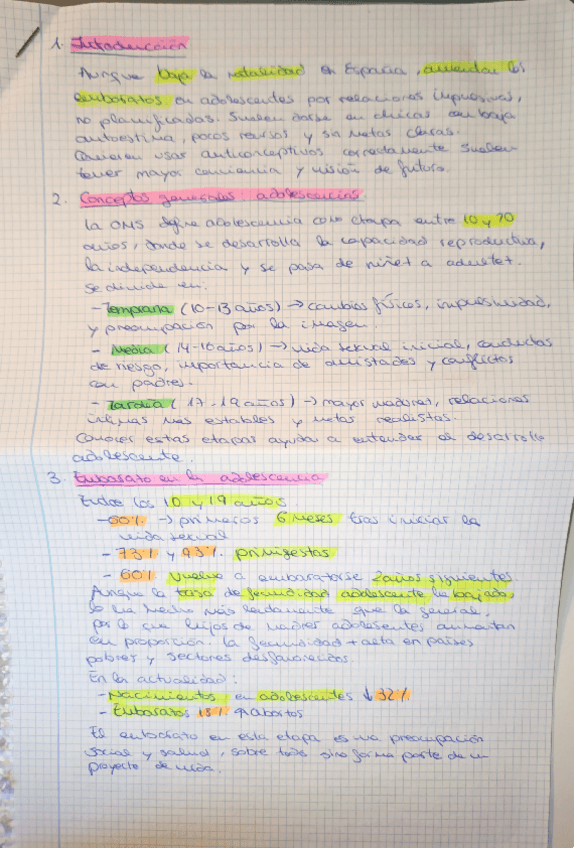 1. Introducción
Aunque baja la natalidad en España, aumentan los
embarazos en adolescentes por relaciones impulsivas,
no planificadas. Suelen darse en chicas con baja
autoestima, pocos recursos y sin metas claras.
Quieren usar anticonceptivos correctamente suelen
tener mayor conciencia y visión de futuro.
2. Conceptos generales adolescencia
La OMS define adolescencia como etapa entre 10 y 20
años, donde se desarrolla la capacidad reproductiva,
la independencia y se pasa de niñez a adultez.
Se divide en:
- Temprana (10-13 años) → cambios físicos, impulsividad,
y preocupación por la imagen.
- Media (14-16 años) → vida sexual inicial, conductas
de riesgo, importancia de amistades y conflictos
con padres.
- Tardía (17-19 años) → mayor madurez, relaciones
íntimas más estables y metas realistas.
Conocer estas etapas ayuda a entender el desarrollo
adolescente.
3. Embarazo en la adolescencia
Entre los 10 y 19 años
- 60% → primeros 6 meses tras iniciar la
vida sexual
- 73% y 93% primigestas
- 60% vuelve a embarazarse 2 años siguientes
Aunque la tasa de fecundidad adolescente ha bajado,
lo ha hecho más lentamente que la general,
por lo que hijos de madres adolescentes aumentan
en proporción. La fecundidad + alta en países
pobres y sectores desfavorecidos.
En la actualidad:
- Nacimientos en adolescentes ↓ 32%
- Embarazos 15% abortos
El embarazo en esta etapa es una preocupación
social y salud, sobre todo si no forma parte de un
proyecto de vida.